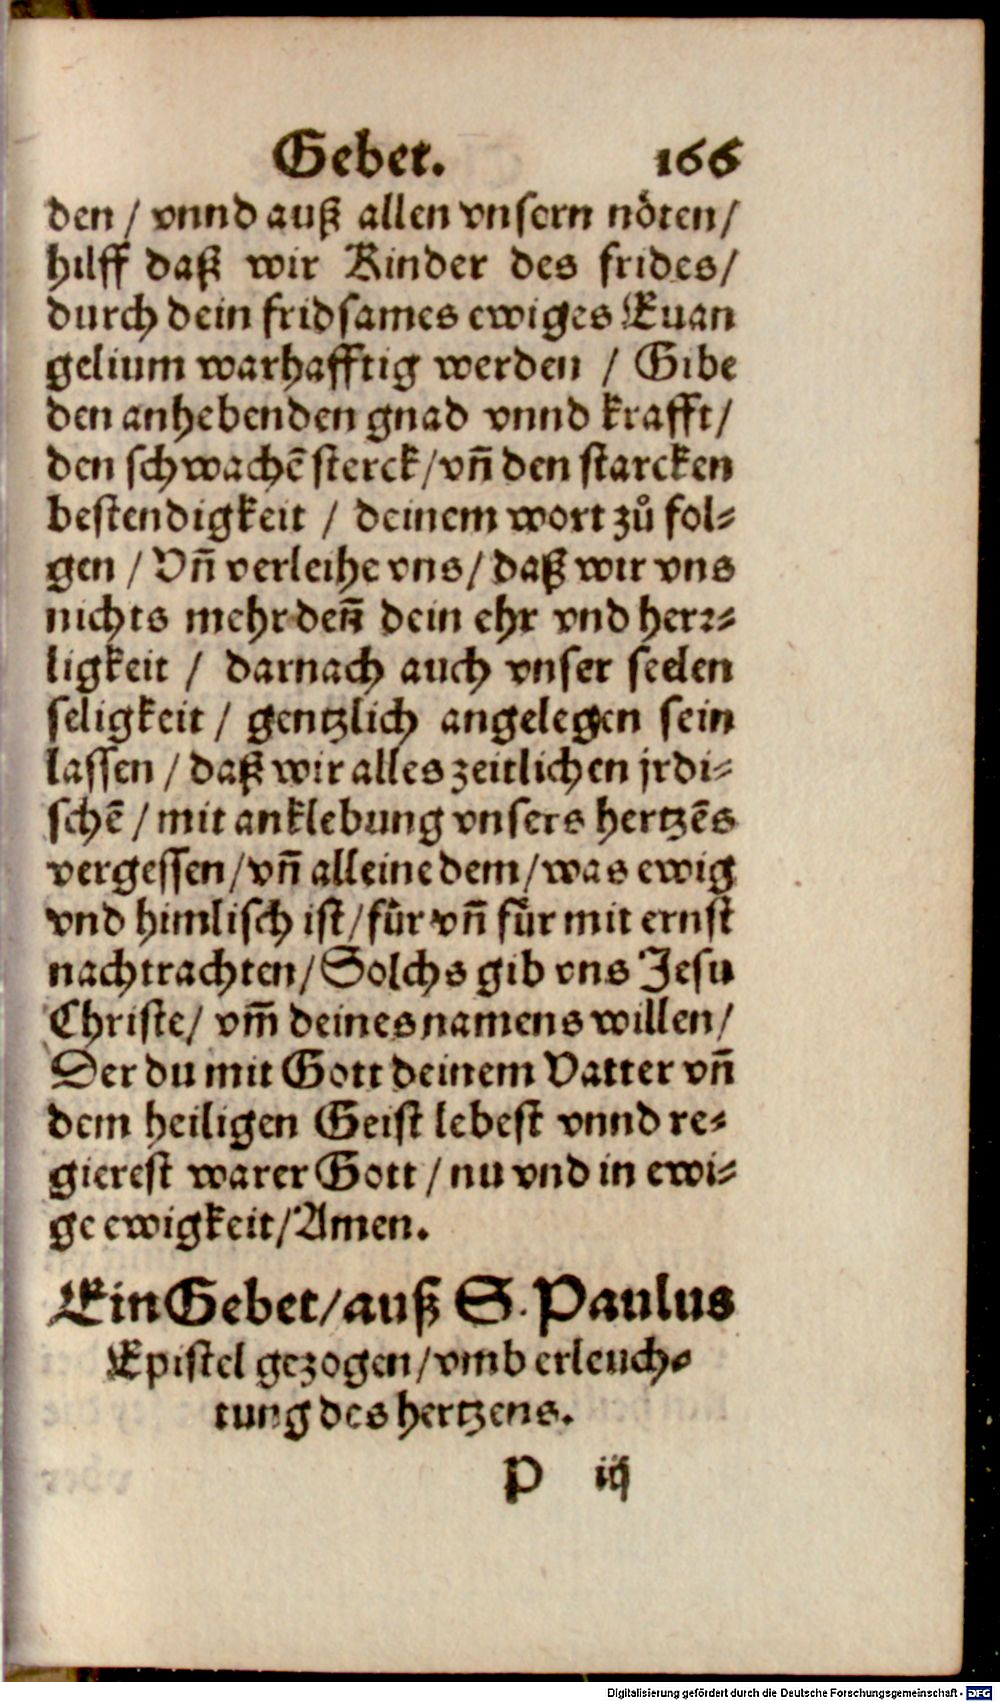 Gebet. 166
den / vnnd auß allen vnsern nöten /
hilff daß wir Kinder des frides /
durch dein fridsames ewiges Euan
gelium warhafftig werden / Gibe
den anhebenden gnad vnnd krafft /
den schwachē sterck / vn̄ den starcken
bestendigkeit / deinem wort zů fol⸗
gen / Vn̄ verleihe vns / daß wir vns
nichts mehr den̄ dein ehr vnd herr⸗
ligkeit / darnach auch vnser seelen
seligkeit / gentzlich angelegen sein
lassen / daß wir alles zeitlichen jrdi⸗
schē / mit anklebung vnsers hertzēs
vergessen / vn̄ alleine dem / was ewig
vnd himlisch ist / für vn̄ für mit ernst
nachtrachten / Solchs gib vns Jesu
Christe / vm̄ deines namens willen /
Der du mit Gott deinem Vatter vn̄
dem heiligen Geist lebest vnnd re⸗
gierest warer Gott / nu vnd in ewi⸗
ge ewigkeit / Amen.
Ein Gebet / auß S. Paulus
Epistel gezogen / vmb erleuch⸗
tung des hertzens.
P iij
Digitalisierung gefördert durch die Deutsche Forschungsgemeinschaft - DFG